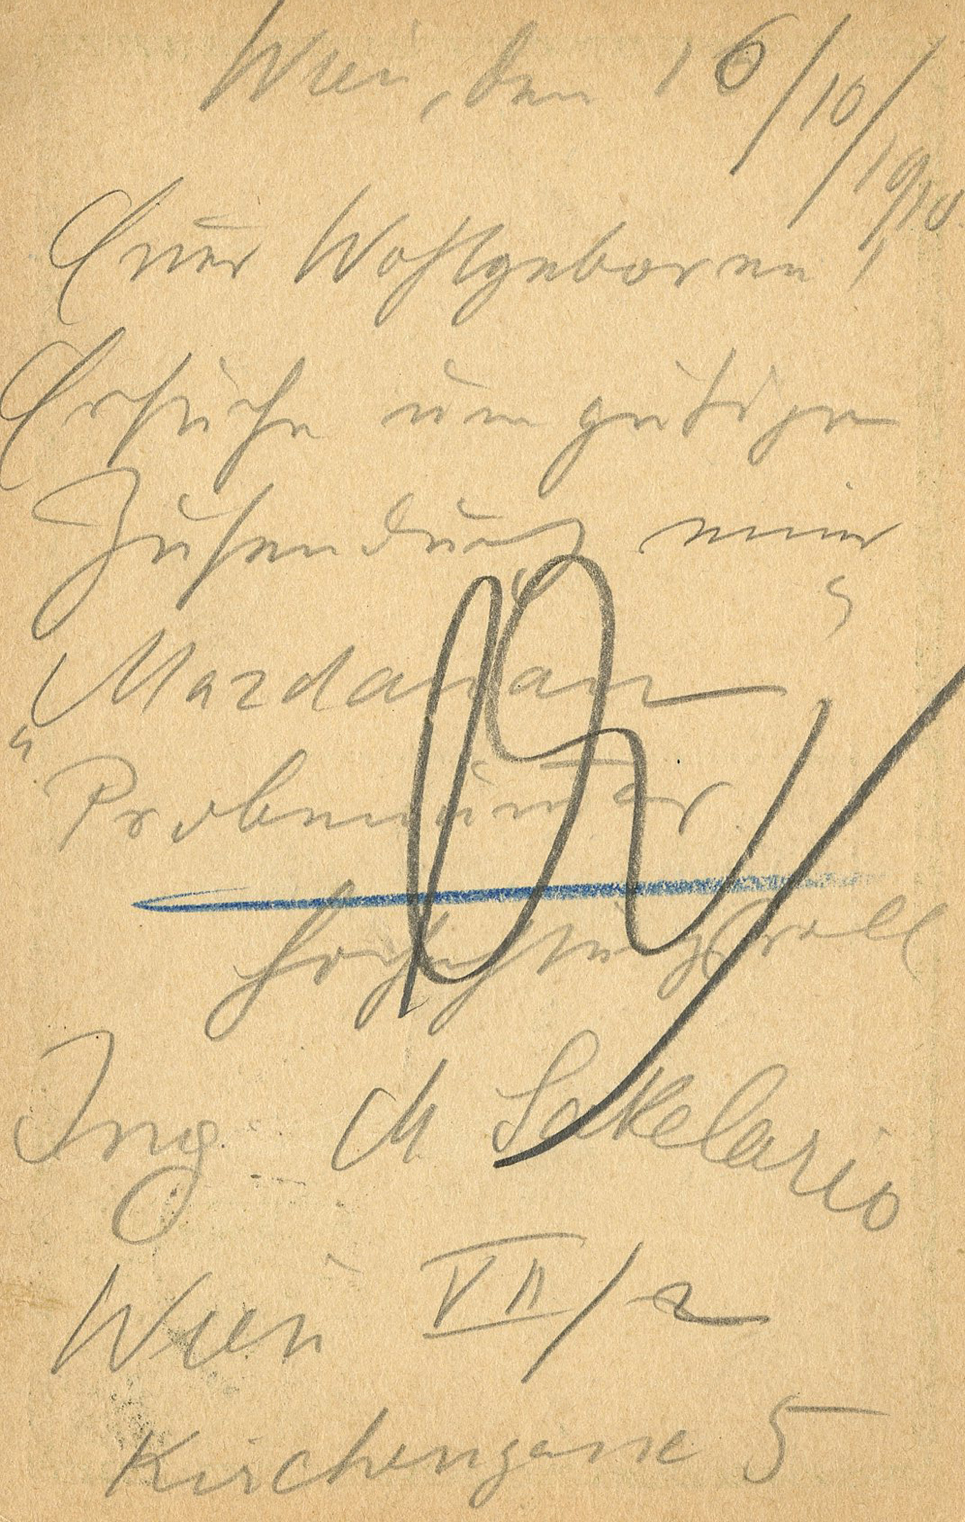 Wien, den 16/10/1910
Euer Wohlgeboren!
Ersuche um gütige
Zusendung einer
„Mazdaznan“
Probenummer
Hochachtungsvoll
Ing. M Sakelario
Wien VII/2
Kirchengasse 5